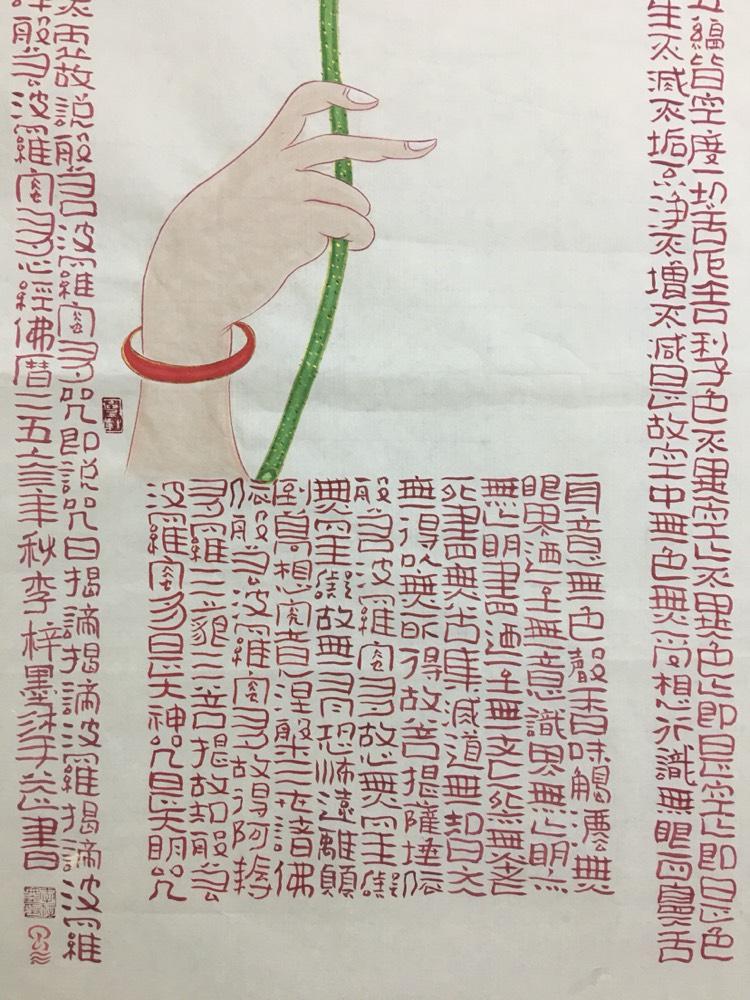 五縕皆空度一切苦厄舍利子色不異空〻不異色〻即是空〻即是色
生不滅不垢不淨不增不減是故空中無色無受想行識無眼耳鼻舌
身意無色聲香味觸灋無
眼界迺至無意識界無〻明亦
無〻明盡迺至無老死亦無老
死盡無苦集滅道無智亦
無得以無所得故菩提薩埵依
般若波羅蜜多故心無罣礙
無罣礙故無有恐怖遠離顛
倒夢想究竟涅槃三世諸佛
依般若波羅蜜多故得阿耨
多羅三藐三菩提故知般若
波羅蜜多是大神咒是大明咒
不虛故說般若波羅蜜多咒即說咒曰揭諦揭諦波羅揭諦波羅
般若波羅蜜多心經佛曆二五六三年秋李梓墨沐手敬書